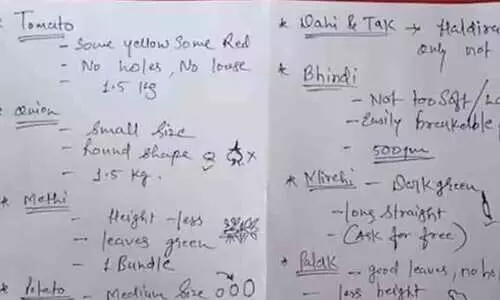 * Tomato
- Some yellow Some Red
- No holes, No loose
- 1.5 kg
* Onion
- Small size
- Round shape
- 1.5 kg.
* Methi
- Height - less
- leaves green
- 1 Bundle
* Potato - Medium Size
* Dahi & Tak → Haldira
only not
* Bhindi
- Not too Soft /
- Easily breakable
- 500gm
* Mirchi - Dark green
- long straight
- (Ask for free)
* Palak - good leaves, no h
- less height